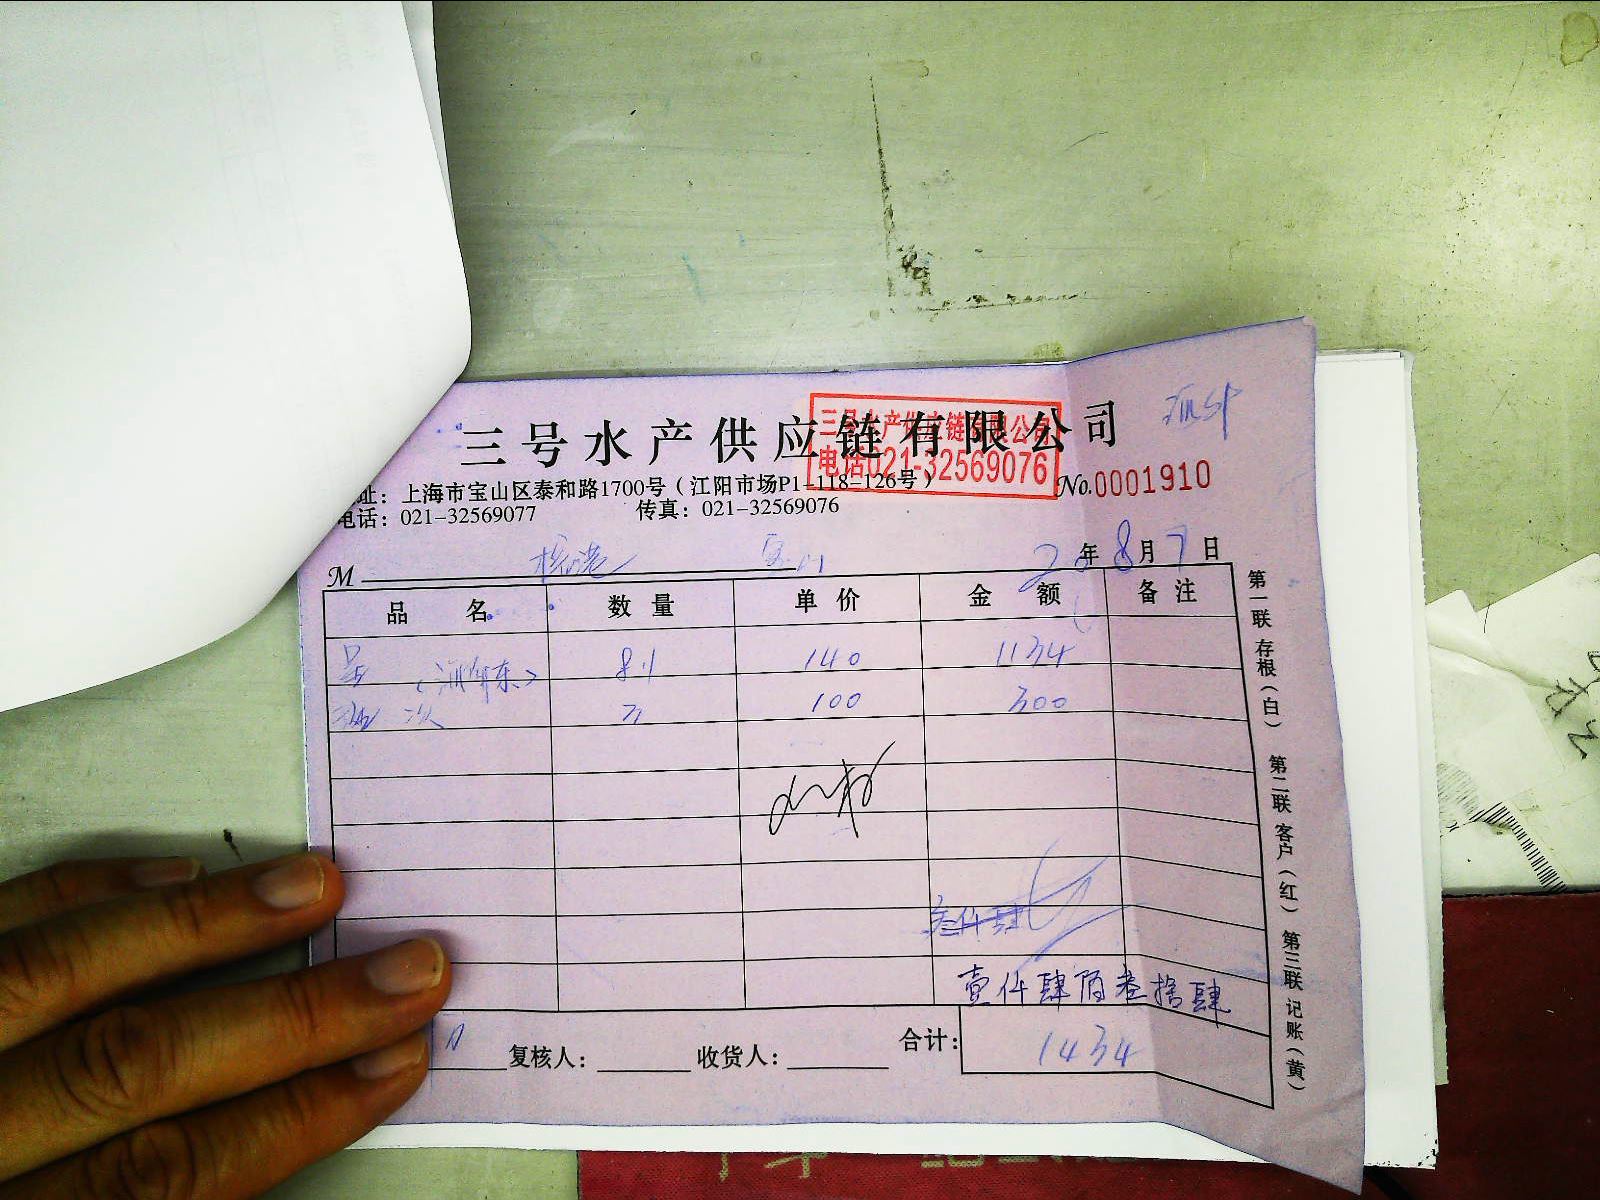 三号水产供应链有限公司
三号水产供应链有限公司
电话021-32569076
址：上海市宝山区泰和路1700号（江阳市场P1-118-126号）
No.0001910
电话：021-32569077 传真：021-32569076
M 年8月7日
品名 数量 单价 金额 备注
8.1 140 1134
100 300
壹仟肆佰叁拾肆
复核人： 收货人： 合计： 1434
第一联 存根（白） 第二联 客户（红） 第三联 记账（黄）